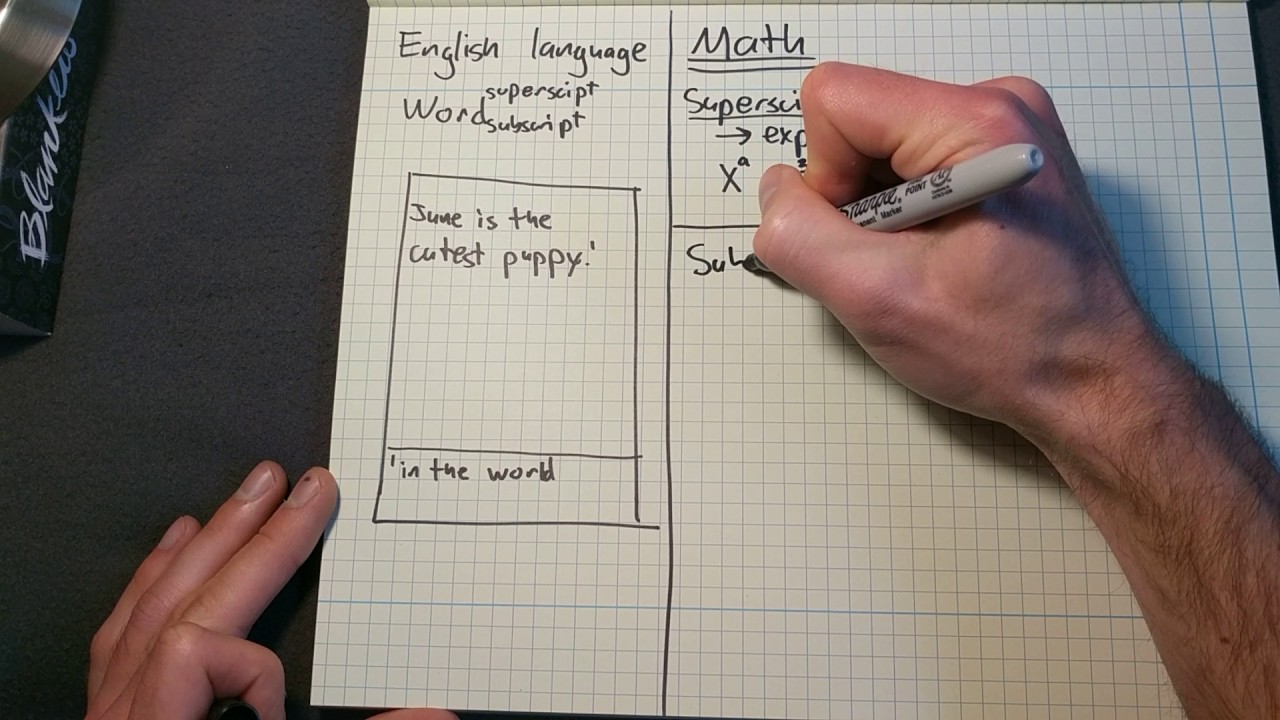 English language
Word superscipt
subscript
June is the
cutest puppy!'
'in the world
Math
Supersci
→ exp
Xᵃ
Sub
Sharpie
POINT
Permanent Marker
Blanked